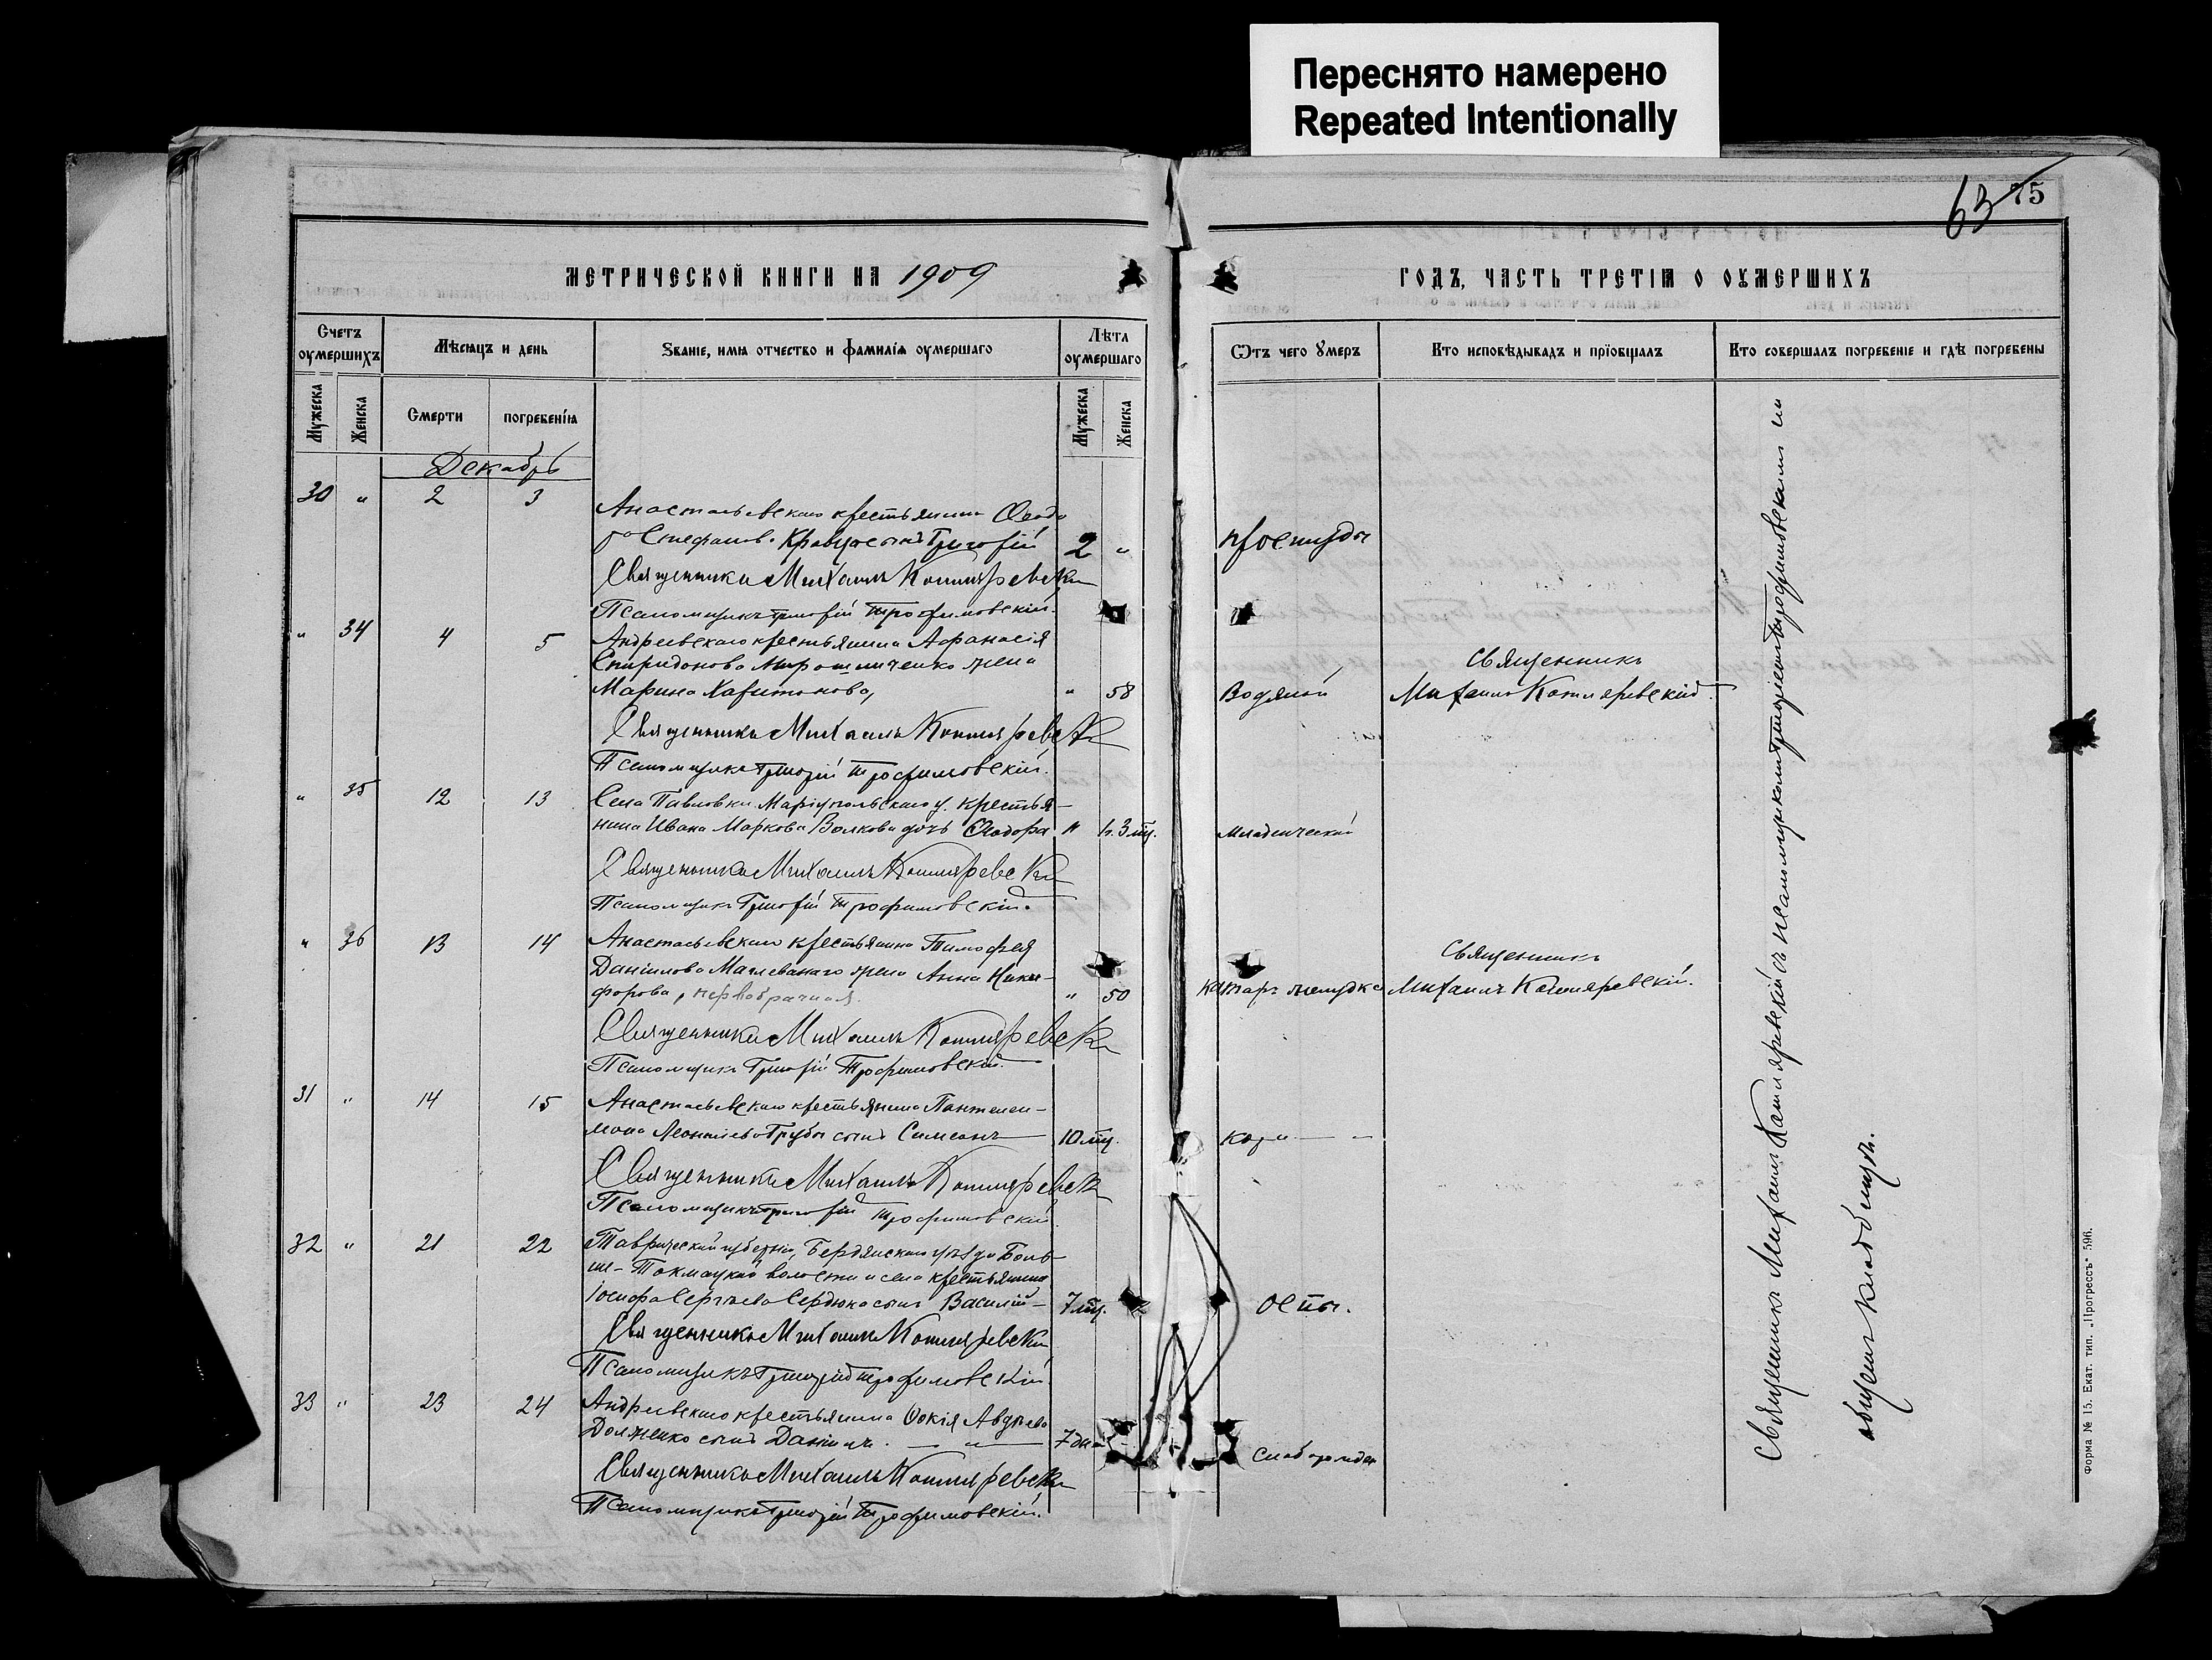 Переснято намерено
Repeated Intentionally
63 75
МЕТРИЧЕСКОЙ КНИГИ НА 1909
ГОДЪ, ЧАСТЬ ТРЕТІЯ О ОУМЕРШИХЪ
Счетъ оумершихъ
Мѣсяцъ и день
Званіе, имя отчество и фамилія оумершаго
Лѣта оумершаго
Ѿтъ чего Умеръ
Кто исповѣдывалъ и пріобщалъ
Кто совершалъ погребеніе и гдѣ погребены
Мужеска
Женска
Смерти
погребенія
Мужеска
Женска
Декабрь
30 " 2 3
Анастасьевскаго крестьянина Ѳеодо
ра Стефанов. Кравца сынъ Григорій 2 " простуды
Священникъ Михаилъ Котляревскій
Псаломщикъ Григорій Трофимовскій.
" 34 4 5 Андреевскаго крестьянина Афанасія
Спиридонова Мирошниченко жена Священникъ
Марина Харитонова, " 58 Водяной Михаилъ Котляревскій.
Священникъ Михаилъ Котляревскій
Псаломщикъ Григорій Трофимовскій.
" 35 12 13 Села Павловки Маріупольскаго у. крестья-
нина Ивана Маркова Волкова дочь Ѳеодора " 3 мц. младенческой
Священникъ Михаилъ Котляревскій
Псаломщикъ Григорій Трофимовскій.
" 36 13 14 Анастасьевскаго крестьянина Тимофея Священникъ
Даніилова Маглеванаго жена Анна Ники-
форова, первобрачная. " 50 катаръ желудка Михаилъ Котляревскій.
Священникъ Михаилъ Котляревскій
Псаломщикъ Григорій Трофимовскій.
31 " 14 15 Анастасьевскаго крестьянина Пантелеи-
мона Леонтьева Трубы сынъ Симеонъ 10 мц. кори
Священникъ Михаилъ Котляревскій
Псаломщикъ Григорій Трофимовскій
32 " 21 22 Таврической губерніи, Бердянскаго уѣзда Боль-
ше-Токмацкой волости и села крестьянина
Іосифа Сергѣева Сердюка сынъ Василій 7 мц. оспы.
Священникъ Михаилъ Котляревскій
Псаломщикъ Григорій Трофимовскій
33 " 23 24 Андреевскаго крестьянина Ѳокія Авдѣева
Долженко сынъ Даніилъ. 7 дн
Священникъ Михаилъ Котляревскій
Псаломщикъ Григорій Трофимовскій.
Священникъ Михаилъ Котляревскій съ псаломщикомъ Григоріемъ Трофимовскимъ на
общемъ кладбищѣ.
Форма № 15. Екат. тип. „Прогрессъ" 596.